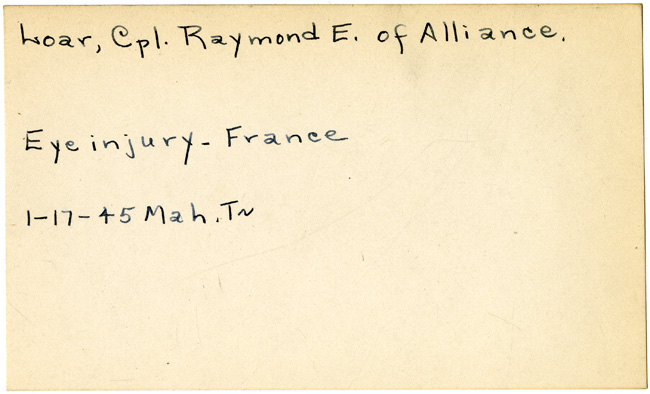 Loar, Cpl. Raymond E. of Alliance.
Eye injury - France
1-17-45 Mah. Tr